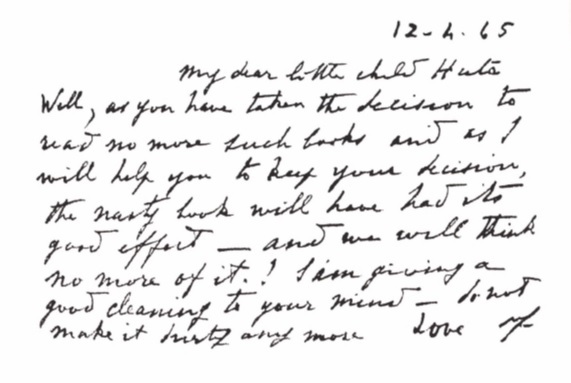 12-4-65
My dear little child Huta
Well, as you have taken the decision to
read no more such books and as I
will help you to keep your decision,
the nasty book will have had its
good effect — and we will think
no more of it.! I am giving a
good cleaning to your mind — do not
make it dirty any more Love